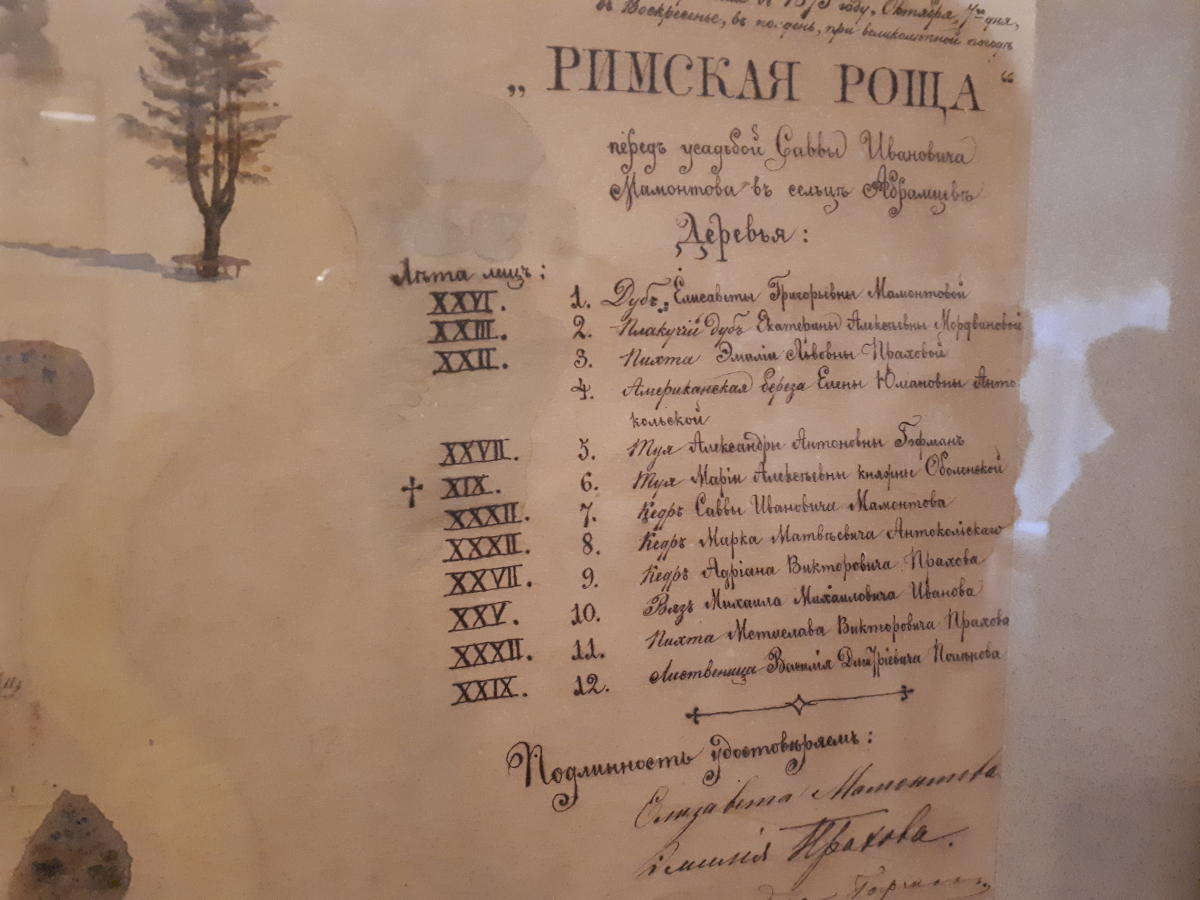 году, Октября, 7го дня,
въ Воскресенье, въ полдень, при великолѣпной погодѣ
„РИМСКАЯ РОЩА“
передъ усадьбой Саввы Ивановича
Мамонтова въ сельцѣ Абрамцевѣ
Деревья:
Лѣта лицъ:
XXVI. 1. Дубъ Елисаветы Григорьевны Мамонтовой
XXIII. 2. Плакучій дубъ Екатерины Алексѣевны Мордвиновой
XXII. 3. Пихта Эмиліи Львовны Праховой
4. Американская береза Елены Юліановны Анто-
кольской
XXVII. 5. Туя Александры Антоновны Гофманъ
† XIX. 6. Туя Маріи Алексѣевны княжны Оболенской
XXXII. 7. Кедръ Саввы Ивановича Мамонтова
XXXII. 8. Кедръ Марка Матвѣевича Антокольскаго
XXVII. 9. Кедръ Адріана Викторовича Прахова
XXV. 10. Вязъ Михаила Михаиловича Иванова
XXXII. 11. Пихта Мстислава Викторовича Прахова
XXIX. 12. Лиственица Василія Дмитріевича Поленова
Подлинность удостовѣряемъ:
Елизавета Мамонтова
Эмилія Прахова.